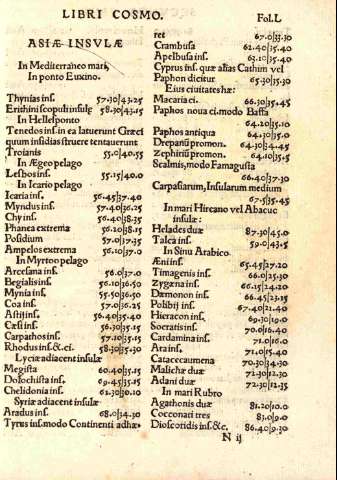 LIBRI COSMO.
Fol.L
ASIÆ INSVLÆ
In Mediterraneo mari,
In ponto Euxino.
Thynias ins. 57.30|43.25
Erithini scopuli insulę 58.30|43.15
In Hellesponto
Tenedos ins. in ea latuerunt Græci
quum insidias struere tentauerunt
Troianis 55.0|40.55
In Ægeo pelago
Lesbos ins. 55.15|40.0
In Icario pelago
Icaria ins. 56.45|37.40
Myndus ins. 57.40|36.25
Chy ins. 56.40|38.35
Phanea extrema 56.20|38.15
Posidium 57.0|37.35
Ampelos extrema 56.10|37.0
In Myrtoo pelago
Arcesana ins. 56.0|37.0
Begialis ins. 56.10|36.50
Mynia ins. 55.50|36.50
Coa ins. 57.0|36.25
Astij ins. 56.40|35.40
Cæsi ins. 56.30|35.15
Carpathos ins. 57.10|35.15
Rhodus ins. &ci. 58.30|35.30
Lyciæ adiacent insulæ
Megista 60.40|35.15
Dolochista ins. 69.45|35.15
Chelidonia ins. 61.30|30.10
Syriæ adiacent insulæ
Aradus ins. 68.0|34.30
Tyrus ins. modo Continenti adhæ
ret 67.0|33.30
Crambusa 62.40|35.40
Apelbusa ins. 63.10|35.40
Cyprus ins. quæ alias Cathim vel
Paphon dicitur 65.30|35.30
Eius ciuitates hæ:
Macaria ci. 66.30|35.45
Paphos noua ci. modo Baffa
64.20|35.10
Paphos antiqua 64.30|35.0
Drepanũ promon. 64.30|34.45
Zephiriũ promon. 64.10|35.5
Scalmis, modo Famagusta
66.40|37.30
Carpasiarum, Insularum medium
67.5|35.45
In mari Hircano vel Abacuc
insulæ:
Helades duæ 87.30|45.0
Talca ins. 59.0|43.5
In Sinu Arabico
Æni ins. 65.45|27.20
Timagenis ins. 66.0|25.30
Zygæna ins. 66.15|24.20
Dæmonon ins. 66.45|23.15
Polibij ins. 67.40|21.40
Hieracon ins. 69.30|19.0
Socratis ins. 70.0|16.40
Cardamina ins. 71.0|16.0
Ara ins. 71.0|15.40
Catacecaumena 70.30|34.30
Malichæ duæ 72.30|12.30
Adani duæ 72.30|12.35
In mari Rubro
Agathonis duæ 81.20|10.0
Cocconati tres 83.0|9.0
Dioscoridis ins. &c. 86.40|9.30
N ij